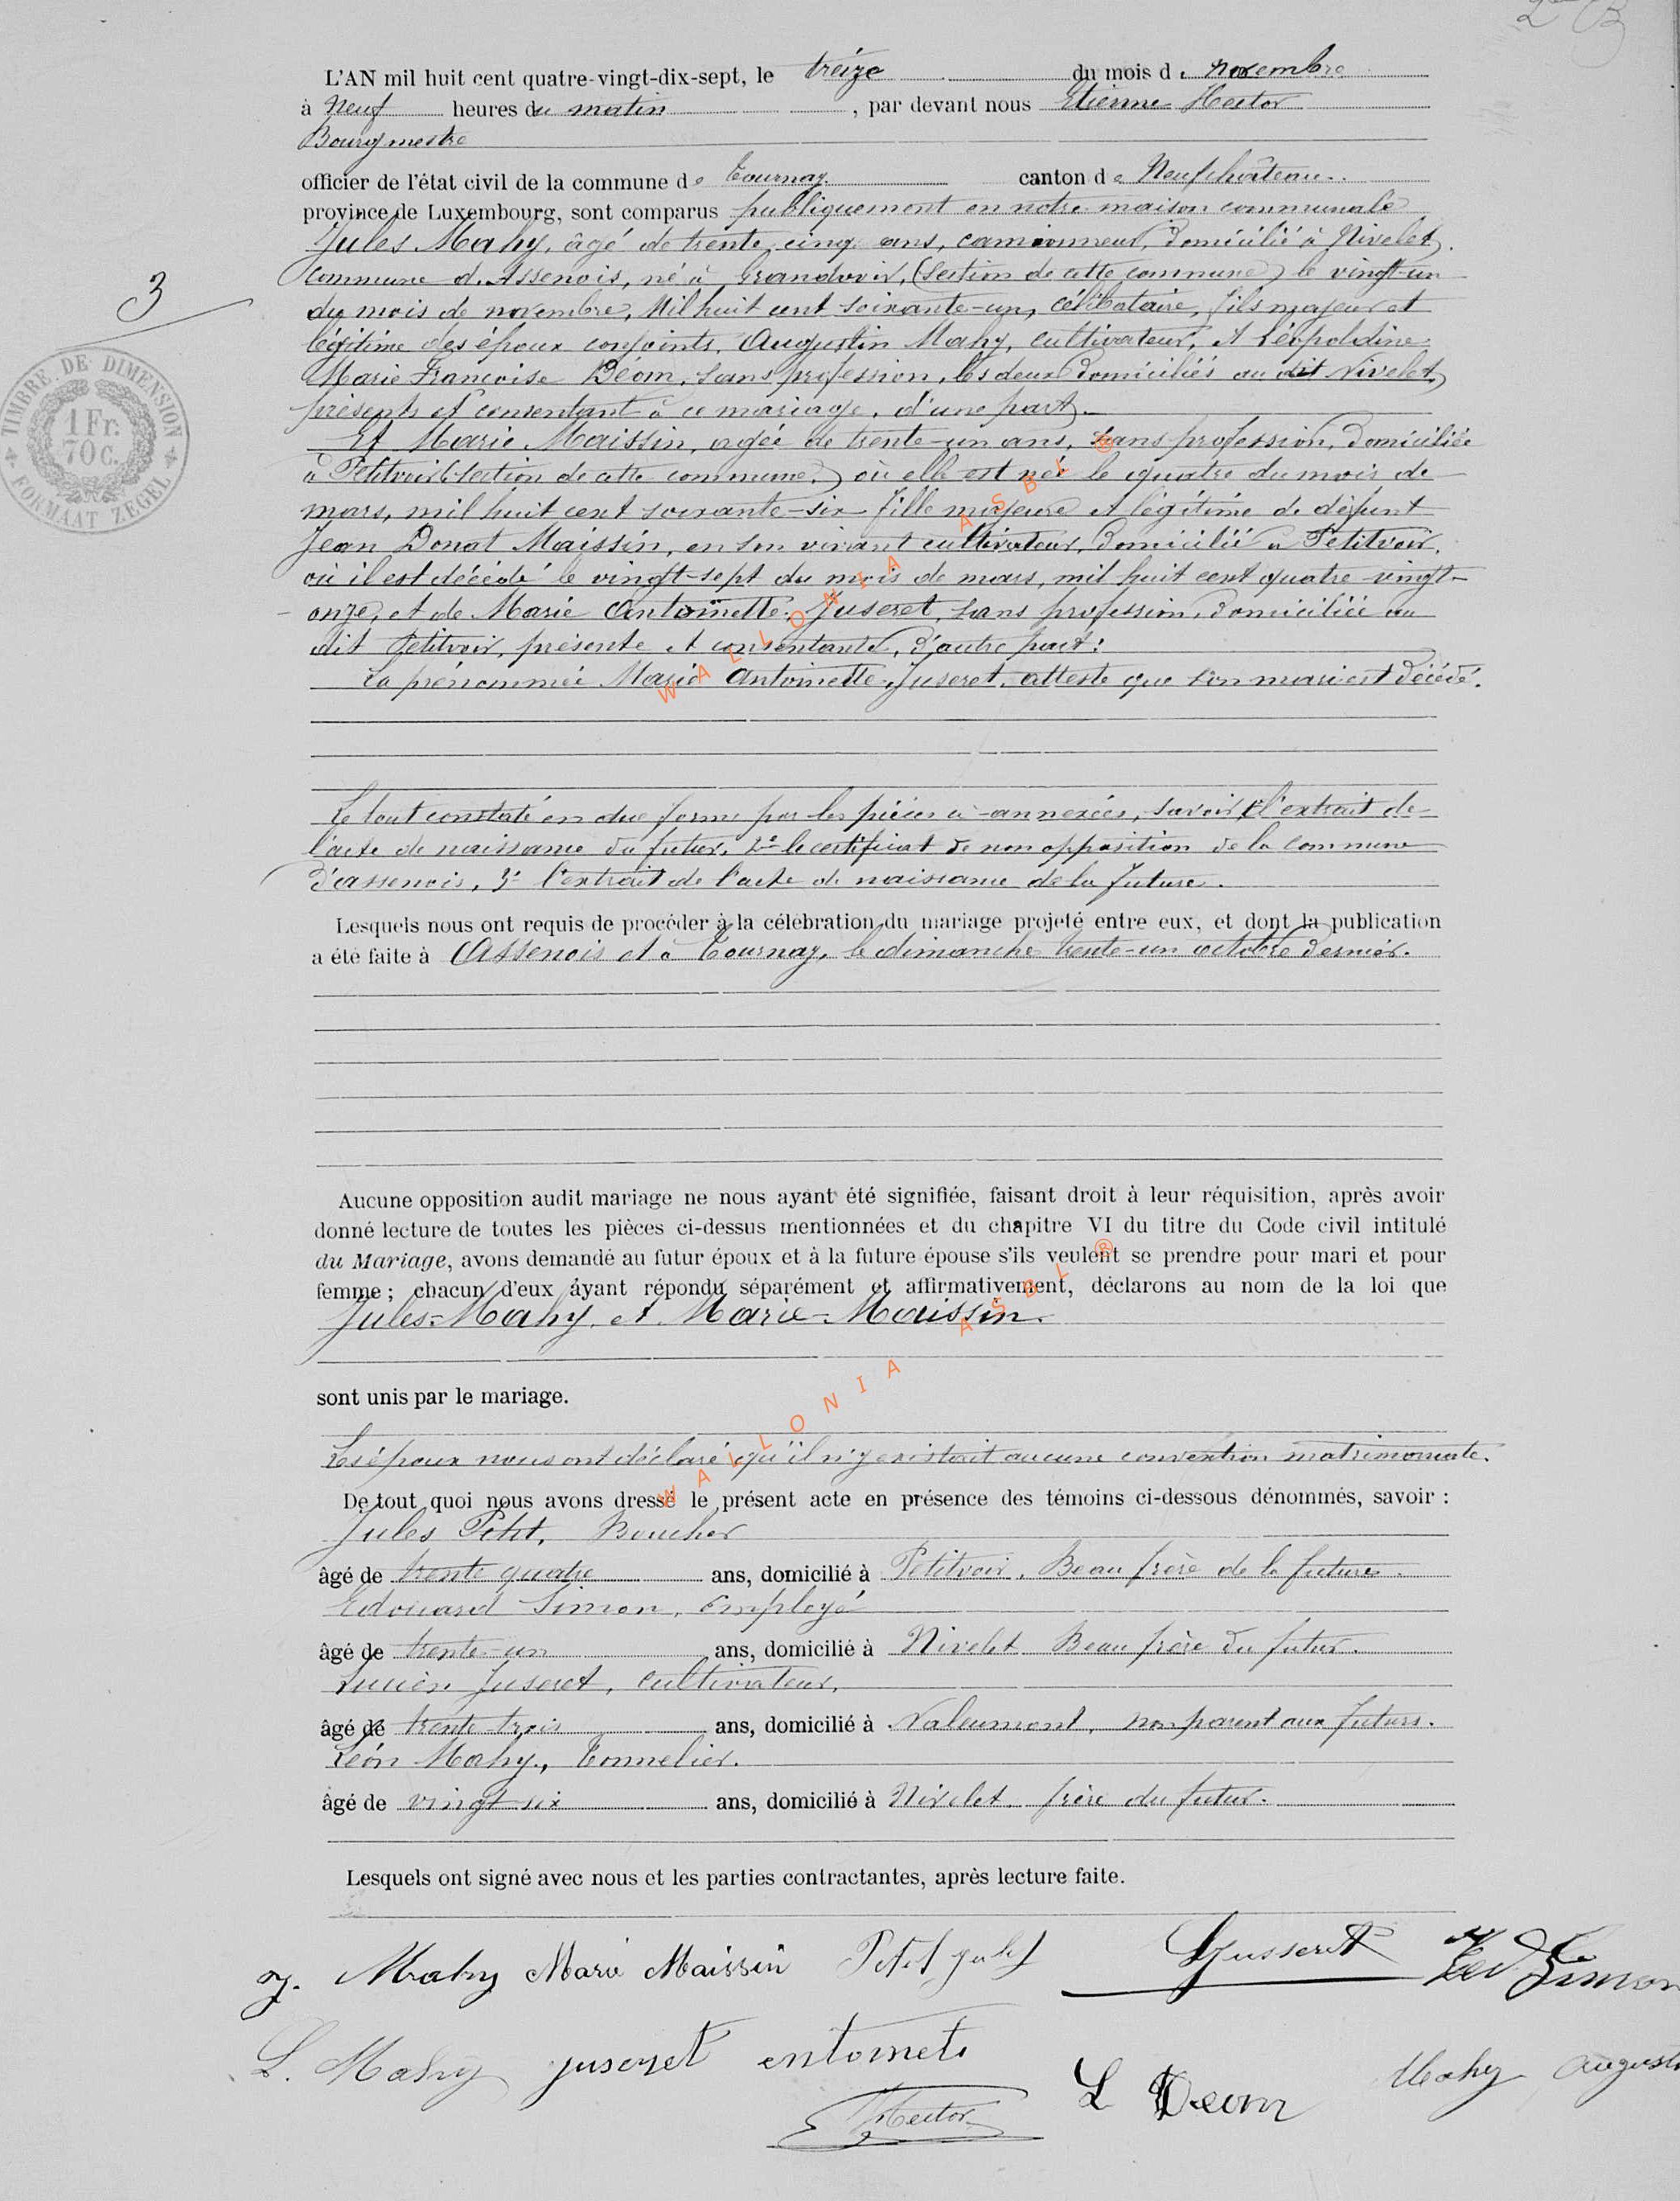 3
TIMBRE DE DIMENSION
1 Fr.
70 C.
FORMAAT ZEGEL
L'AN mil huit cent quatre-vingt-dix-sept, le treize du mois de novembre
à Neuf heures du matin, par devant nous Etienne Hector
Bourgmestre
officier de l'état civil de la commune de Tournay canton de Neufchâteau
province de Luxembourg, sont comparus publiquement en notre maison communale
Jules Mahy, âgé de trente cinq ans, camionneur, domicilié à Nivelet,
commune d'Assenois, né à Grandvoir, (section de cette commune) le vingt-un
du mois de novembre, Mil huit cent soixante-un, célibataire, fils majeur et
légitime des époux conjoints, Augustin Mahy, cultivateur, et Léopoldine
Marie Françoise Déom, sans profession, les deux domiciliés au dit Nivelet,
présents et consentant à ce mariage, d'une part.
Et Marie Maissin, agée de trente-un ans, sans profession, domiciliée
à Petitvoir (section de cette commune) où elle est née le quatre du mois de
mars, mil huit cent soixante-six fille majeure et légitime de défunt
Jean Donat Maissin, en son vivant cultivateur, domicilié à Petitvoir,
où il est décédé le vingt-sept du mois de mars, mil huit cent quatre vingt-
onze, et de Marie Antoinette Juseret, sans profession, domiciliée au
dit Petitvoir, présente et consentante, d'autre part:
La prénommée Marie Antoinette Juseret, atteste que son mari est décédé.
Le tout constaté en due forme par les pièces ci-annexées, savoir, l'extrait de
l'acte de naissance du futur, 2° le certificat de non opposition de la commune
d'assenois, 3° l'extrait de l'acte de naissance de la future.
Lesquels nous ont requis de procéder à la célébration du mariage projeté entre eux, et dont la publication
a été faite à Assenois et à Tournay, le dimanche trente-un octobre dernier.
Aucune opposition audit mariage ne nous ayant été signifiée, faisant droit à leur réquisition, après avoir
donné lecture de toutes les pièces ci-dessus mentionnées et du chapitre VI du titre du Code civil intitulé
du Mariage, avons demandé au futur époux et à la future épouse s'ils veulent se prendre pour mari et pour
femme ; chacun d'eux ayant répondu séparément et affirmativement, déclarons au nom de la loi que
Jules Mahy et Marie Maissin.
sont unis par le mariage.
Les époux nous ont déclaré qu'il n'y existait aucune convention matrimoniale.
De tout quoi nous avons dressé le présent acte en présence des témoins ci-dessous dénommés, savoir :
Jules Petit, Boucher
âgé de trente quatre ans, domicilié à Petitvoir, Beau frère de la future.
Edouard Simon, Employé
âgé de trente-un ans, domicilié à Nivelet Beau frère du futur.
Lucien Juseret, cultivateur,
âgé de trente-trois ans, domicilié à Naleumont, non parent aux futurs.
Léon Mahy, Tonnelier.
âgé de vingt-six ans, domicilié à Nivelet frère du futur.
Lesquels ont signé avec nous et les parties contractantes, après lecture faite.
J. Mahy Marie Maissin Petit Jules L Jusseret Ed Simon
L. Mahy juseret entoinete L Deom Mahy August
Hector
WALLONIA ASBL ®
WALLONIA ASBL ®